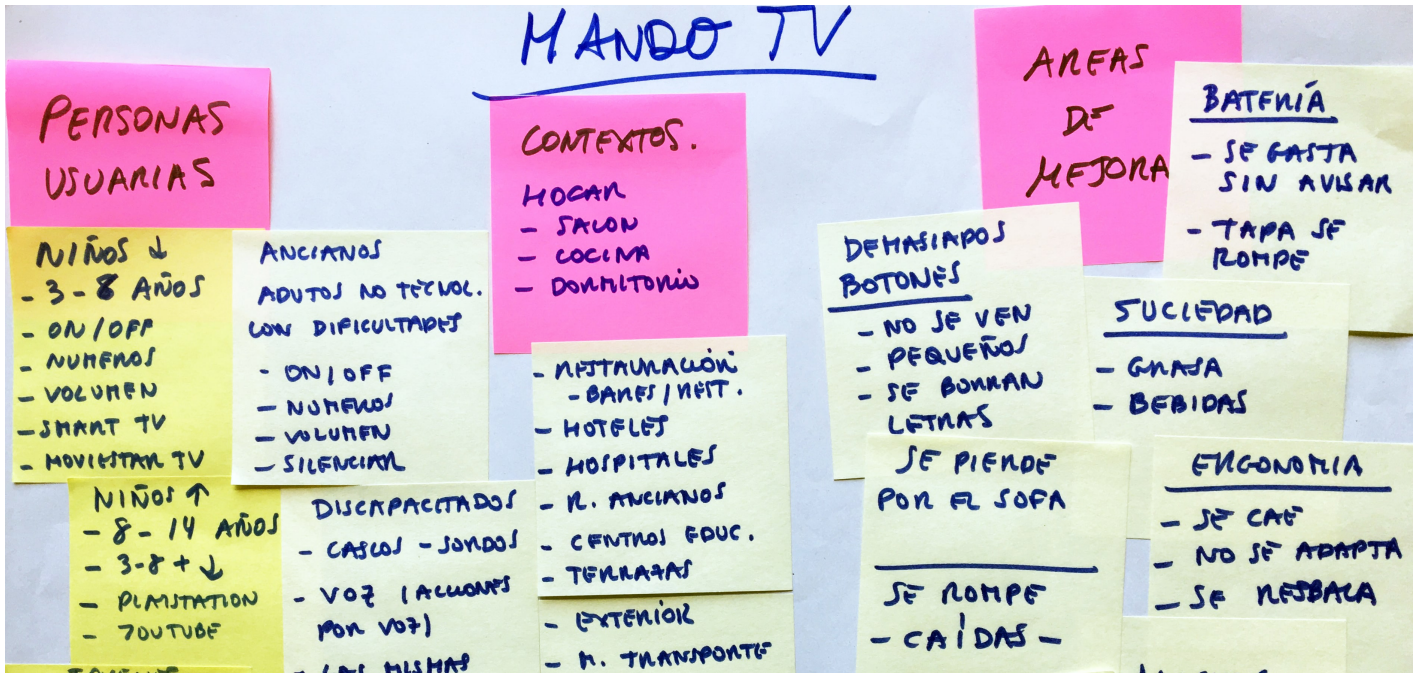 MANDO TV
PERSONAS
USUARIAS
NIÑOS ↓
- 3 - 8 AÑOS
- ON/OFF
- NUMEROS
- VOLUMEN
- SMART TV
- MOVIESTAR TV
NIÑOS ↑
- 8 - 14 AÑOS
- 3-8 + ↓
- PLAYSTATION
- YOUTUBE
ANCIANOS
ADUTOS NO TECNOL.
CON DIFICULTADES
- ON/OFF
- NUMEROS
- VOLUMEN
- SILENCIAR
DISCAPACITADOS
- CASCOS - SORDOS
- VOZ (ACCIONES
POR VOZ)
- LAS MISMAS
CONTEXTOS.
HOGAR
- SALON
- COCINA
- DORMITORIO
- RESTAURACIÓN
- BARES/REST.
- HOTELES
- HOSPITALES
- R. ANCIANOS
- CENTROS EDUC.
- TERRAZAS
- EXTERIOR
- M. TRANSPORTE
AREAS
DE
MEJORA
BATERÍA
- SE GASTA
SIN AVISAR
- TAPA SE
ROMPE
DEMASIADOS
BOTONES
- NO SE VEN
- PEQUEÑOS
- SE BORRAN
LETRAS
SUCIEDAD
- GRASA
- BEBIDAS
SE PIERDE
POR EL SOFA
SE ROMPE
- CAÍDAS -
ERGONOMIA
- SE CAE
- NO SE ADAPTA
- SE RESBALA